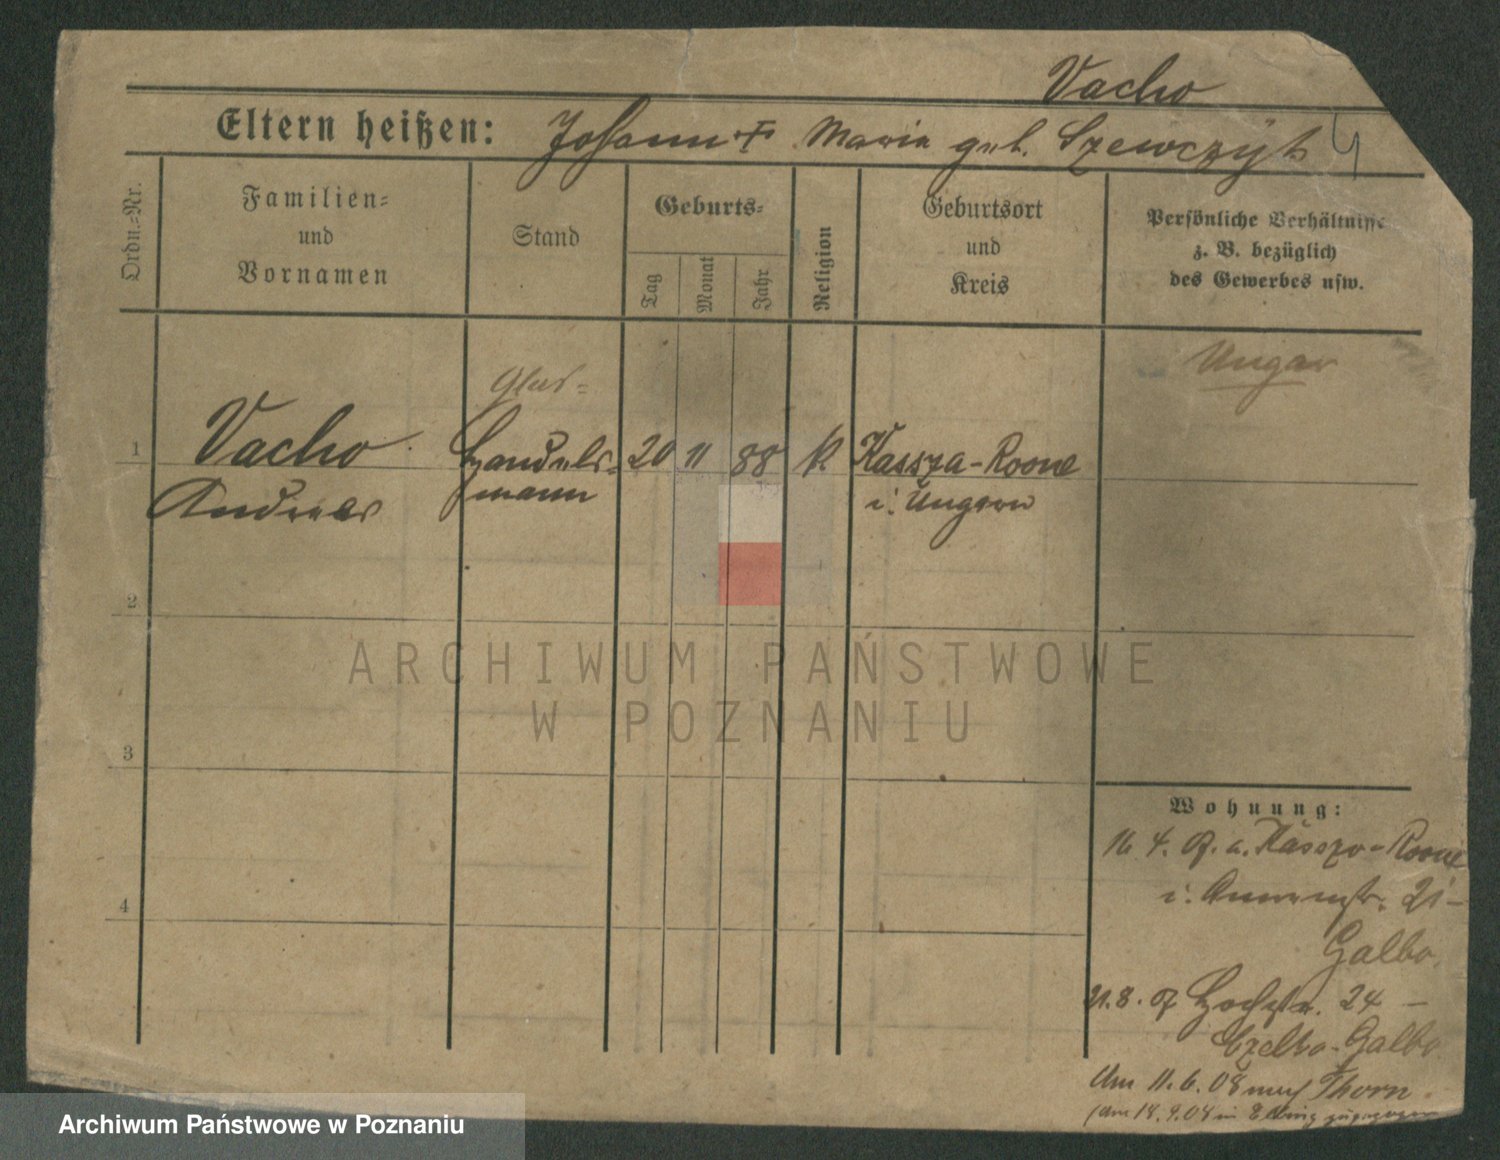 Vacho
Eltern heißen: Johann † Maria geb. Szewczyk
Ordn.-Nr.
Familien-
und
Vornamen
Stand
Geburts-
Tag
Monat
Jahr
Religion
Geburtsort
und
Kreis
Persönliche Verhältnisse
z. B. bezüglich
des Gewerbes usw.
Ungar
Glas-
1 Vacho Handels- 20 11 88 k. Kassza-Roone
Andreas mann i. Ungarn
2
3
4
Wohnung:
16. 4. 07. a. Kassza-Roone
i. 21-
Galbo.
21. 8. 07 24 -
Galbo
Am 11. 6. 08 nach Thorn.
ARCHIWUM PAŃSTWOWE
W POZNANIU
Archiwum Państwowe w Poznaniu